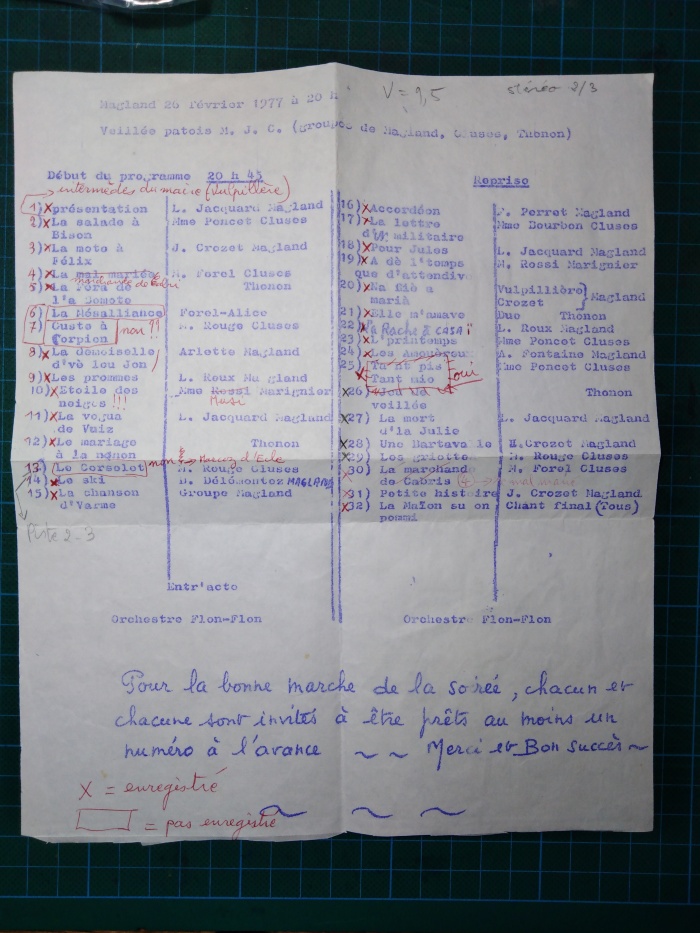 V = 9,5
stéréo 2/3
Magland 26 février 1977 à 20 H
Veillée patois M. J. C. (groupes de Magland, Cluses, Thonon)
Début du programme 20 h 45
intermèdes du maire (Vulpillière)
1) X présentation L. Jacquard Magland
2) X La salade à Mme Poncet Cluses
Bison
3) X La moto à J. Crozet Magland
Félix
4) X La mal mariée M. Forel Cluses
marchande de cabri
5) X La Fora de Thonon
l'a Domote
6) La Mésalliance Forel-Alice
7) Guste à M. Rouge Cluses
Corpion
non !!
8) X La demoiselle Arlette Magland
d'vè lou Jon
9) X Les prommes L. Roux Magland
10) X Etoile des Mme Rossi Marignier
neiges !!! Musi
11) X La vogua L. Jacquard Magland
de Vaiz
12) X Le mariage Thonon
à la nonon
13) Le Corsolet non M. Rouge Cluses
14) X Le ski D. Délémontez MAGLAND
15) X La chanson Groupe Magland
d'Varme
Piste 2-3
Entr'acte
Orchestre Flon-Flon
Reprise
16) X Accordéon F. Perret Magland
17) X La lettre Mme Bourbon Cluses
d'un militaire
18) X Pour Jules L. Jacquard Magland
19) X A dè l'temps M. Rossi Marignier
que d'attendiv
20) X Na Diò a Vulpillière
marià Crozet } Magland
21) X Elle m'amave Duo Thonon
22) X la Rache à CASAÏ L. Roux Magland
23) X L'printemps Mme Poncet Cluses
24) X Les Amouèreux A. Fontaine Magland
25) Tant pis Mme Poncet Cluses
X Tant mie oui
X 26) Thonon
veillée
X 27) La mort L. Jacquard Magland
d'la Julie
X 28) Une Bartava le H. Crozet Magland
X 29) Les griotte M. Rouge Cluses
X 30) La marchande M. Forel Cluses
de Cabris (4) → mal mariée
X 31) Petite histoire J. Crozet Magland
X 32) La Maïon su on Chant final (Tous)
pommi
Orchestre Flon-Flon
Pour la bonne marche de la soirée, chacun et
chacune sont invités à être prêts au moins un
numéro à l'avance ~ ~ Merci et Bon Succès ~
X = enregistré
= pas enregistré